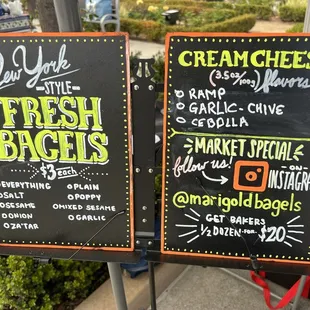 New York
-STYLE-
FRESH
BAGELS
$3 each
EVERYTHING
SALT
SESAME
ONION
ZA'TAR
PLAIN
POPPY
MIXED SESAME
GARLIC
CREAM CHEESE
(3.5oz/100g) flavors
RAMP
GARLIC-CHIVE
CEBOLLA
MARKET SPECIAL
follow us!
-ON-
INSTAGRAM
@marigoldbagels
GET BAKERS
1/2 DOZEN FOR $20